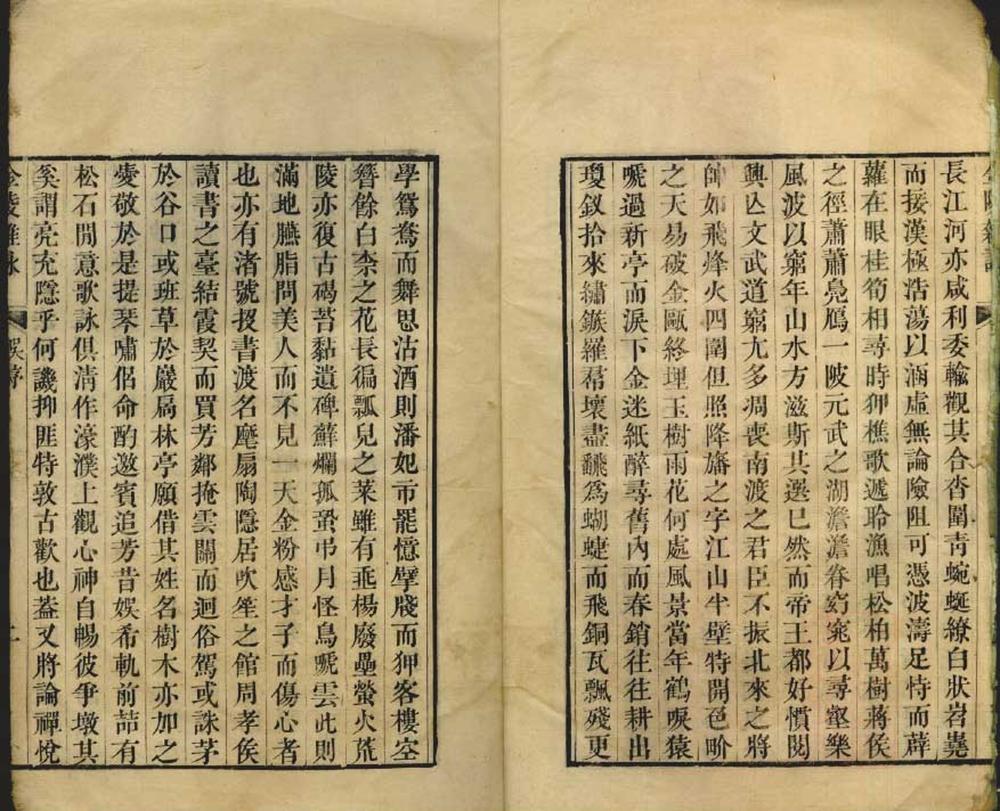 長江河亦咸利委輸觀其合沓圍青蜿蜒繚白狀岧嶤
而接漢極浩蕩以涵虛無論險阻可憑波濤足恃而薜
蘿在眼桂筍相尋時狎樵歌遞聆漁唱松柏萬樹蔣侯
之徑蕭蕭鳧鴈一陂元武之湖澹澹眷窈窕以尋壑樂
風波以窮年山水方滋斯其選已然而帝王都好慣閱
興亾文武道窮尢多凋喪南渡之君臣不振北來之將
帥如飛烽火四圍但照降旛之字江山半壁特開芭畍
之天易破金甌終埋玉樹雨花何處風景當年鶴唳猿
嗁過新亭而淚下金迷紙醉尋舊內而春銷往往耕出
瓊釵拾來繡鏃羅帬壞盡飜爲蝴蝶而飛銅瓦飄殘更
學鴛鴦而舞思沽酒則潘妃市罷憶擘牋而狎客樓空
簪餘白柰之花長徧瓢兒之菜雖有垂楊廢壘螢火荒
陵亦復古碣苔黏遺碑蘚爛孤蛩弔月怪鳥嗁雲此則
滿地臙脂問美人而不見一天金粉感才子而傷心者
也亦有渚號投書渡名麾扇陶隱居吹笙之館周孝侯
讀書之臺結霞契而買芳鄰掩雲關而迴俗駕或誅茅
於谷口或班草於巖扃林亭願借其姓名樹木亦加之
愛敬於是提琴嘯侶命酌邀賓追芳昔娛希軌前喆有
松石閒意歌詠俱清作濠濮上觀心神自暢彼爭墩其
奚謂亮充隱乎何譏抑匪特敦古歡也葢又將論禪悅
金陵雜詠
二